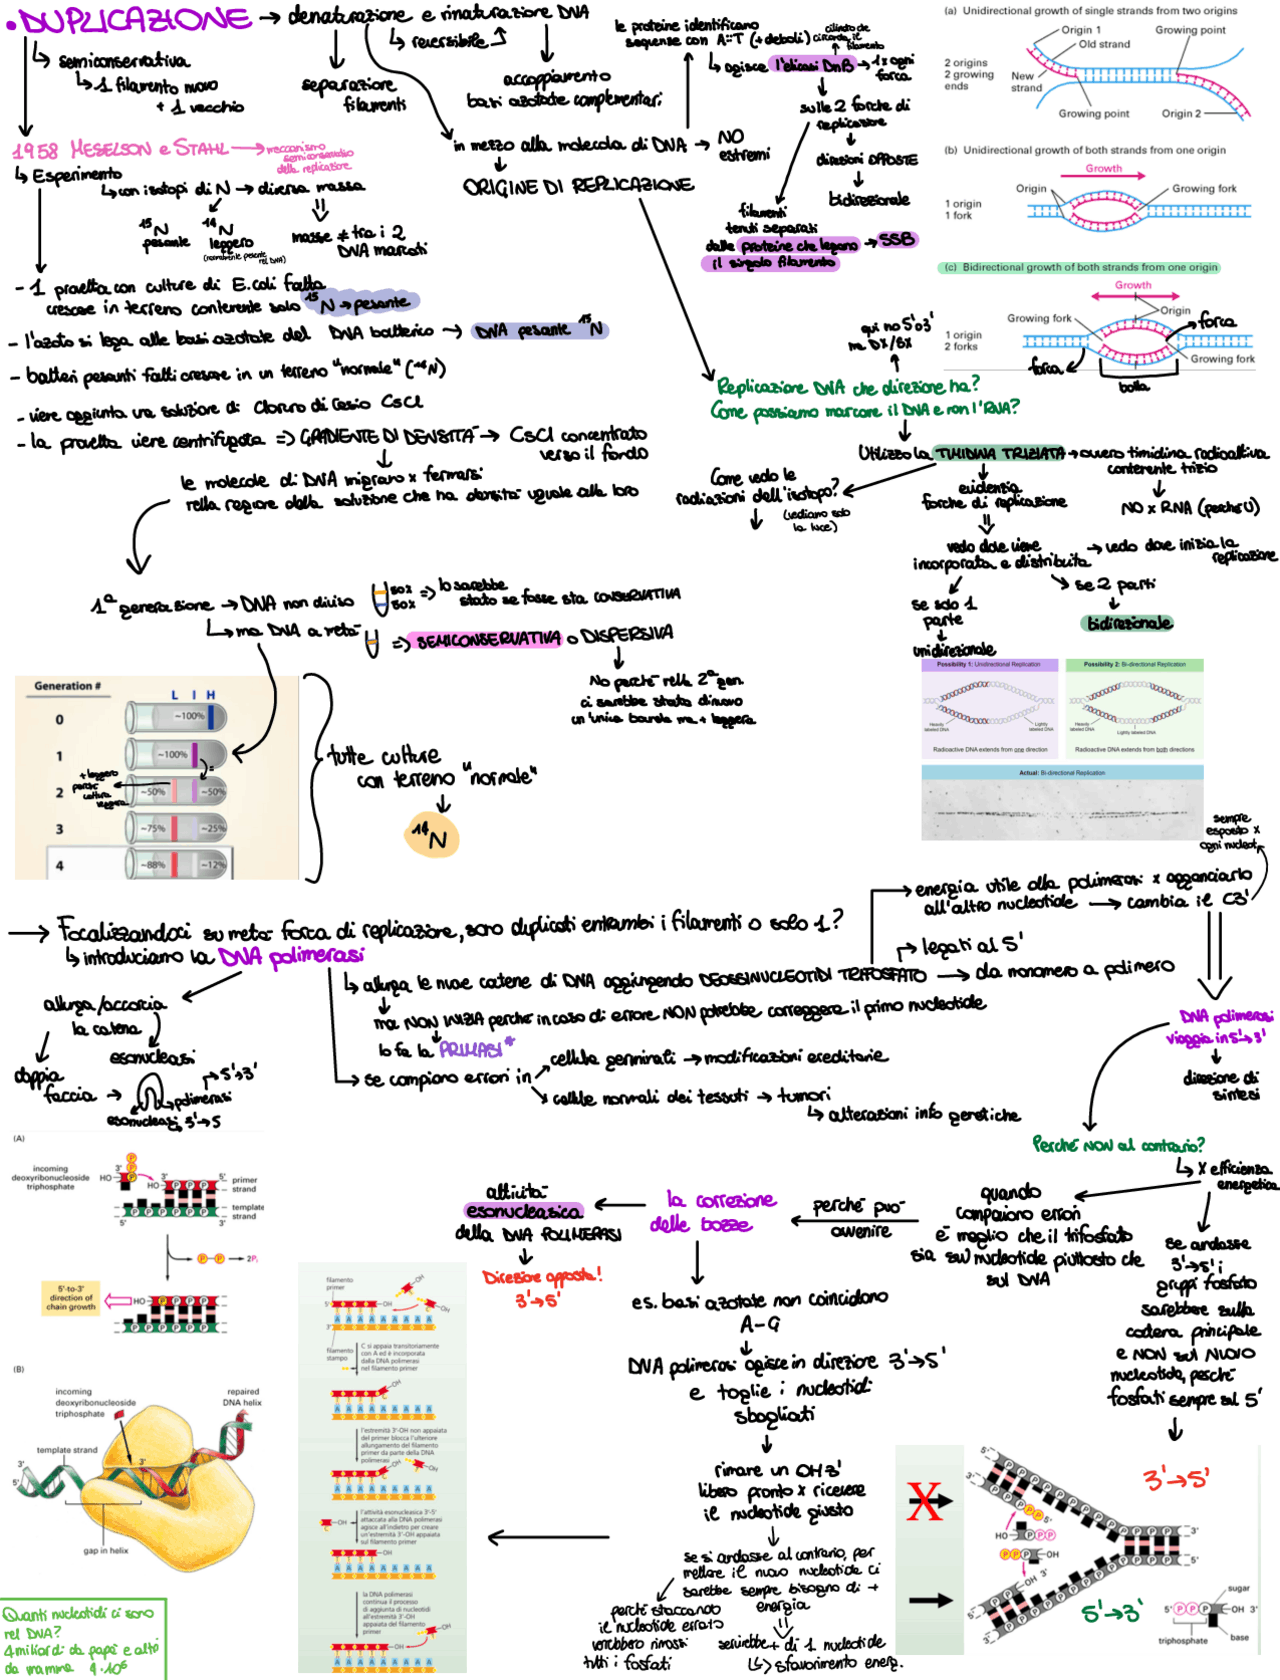 • DUPLICAZIONE → denaturazione e rinaturazione DNA
↳ reversibile
↳ semiconservativa
↳ 1 filamento nuovo
+ 1 vecchio
separazione
filamenti
accoppiamento
basi azotate complementari
1958 MESELSON e STAHL → meccanismo
semiconservativo
della replicazione
↳ Esperimento
↳ con isotopi di N → diversa massa
¹⁵N
pesante
¹⁴N
leggero
(normalmente presente
nel DNA)
masse ≠ tra i 2
DNA marcati
- 1 provetta con culture di E.coli fatta
crescere in terreno contenente solo ¹⁵N → pesante
- l'azoto si lega alle basi azotate del DNA batterico → DNA pesante ¹⁵N
- batteri pesanti fatti crescere in un terreno "normale" (¹⁴N)
- viene aggiunta una soluzione di Cloruro di Cesio CsCl
- la provetta viene centrifugata => GRADIENTE DI DENSITÀ → CsCl concentrato
verso il fondo
le molecole di DNA migrano x fermarsi
nella regione della soluzione che ha densità uguale alla loro
1ª generazione → DNA non diviso
50%
50%
=> lo sarebbe
stato se fosse sta CONSERVATIVA
↳ ma DNA a metà
=> SEMICONSERVATIVA o DISPERSIVA
No perchè nella 2ª gen.
ci sarebbe stata di nuovo
un'unica banda ma + leggera
Generation #
L I H
0 ~100%
1 ~100%
2 ~50% ~50%
3 ~75% ~25%
4 ~88% ~12%
+ leggero
perchè
coltura
leggera
tutte culture
con terreno "normale"
¹⁴N
in mezzo alla molecola di DNA → NO
estremi
ORIGINE DI REPLICAZIONE
le proteine identificano
sequenze con A::T (+ deboli)
↳ agisce l'elicasi DnB → 1 x ogni
forca
cilindro che
circonda il
filamento
sulle 2 forche di
replicazione
direzioni OPPOSTE
bidirezionale
filamenti
tenuti separati
dalle proteine che legano → SSB
il singolo filamento
(a) Unidirectional growth of single strands from two origins
2 origins
2 growing
ends
Origin 1
Old strand
New
strand
Growing point
Growing point
Origin 2
(b) Unidirectional growth of both strands from one origin
Growth
Origin
Growing fork
1 origin
1 fork
(c) Bidirectional growth of both strands from one origin
Growth
Origin
Growing fork
Growing fork
1 origin
2 forks
forca
forca
bolla
qui no 5' o 3'
ma DX/SX
Replicazione DNA che direzione ha?
Come possiamo marcare il DNA e non l'RNA?
Utilizzo la TIMIDINA TRIZIATA → ovvero timidina radioattiva
contenente trizio
NO x RNA (perchè U)
Come vedo le
radiazioni dell'isotopo?
(vediamo solo
la luce)
evidenzia
forche di replicazione
vedo dove viene
incorporata e distribuita
→ vedo dove inizia la
replicazione
se solo 1
parte
unidirezionale
se 2 parti
bidirezionale
Possibility 1: Unidirectional Replication
Heavily
labeled DNA
Lightly
labeled DNA
Radioactive DNA extends from one direction
Possibility 2: Bi-directional Replication
Heavily
labeled DNA
Lightly labeled DNA
Radioactive DNA extends from both directions
Actual: Bi-directional Replication
→ Focalizzandoci su metà forca di replicazione, sono duplicati entrambi i filamenti o solo 1?
↳ introduciamo la DNA polimerasi
allunga/accorcia
la catena
esonucleasi
doppia
faccia →
polimerasi
5'→3'
esonucleasi 3'→5
↳ allunga le nuove catene di DNA aggiungendo DEOSSINUCLEOTIDI TRIFOSFATO → da monomero a polimero
legati al 5'
energia utile alla polimerasi x agganciarlo
all'altro nucleotide → cambia il C3'
sempre
esposto x
ogni nucleot.
ma NON INIZIA perchè in caso di errore NON potrebbe correggere il primo nucleotide
lo fa la PRIMASI *
→ se compiono errori in
cellule germinali → modificazioni ereditarie
cellule normali dei tessuti → tumori
↳ alterazioni info genetiche
DNA polimerasi
viaggia in 5'→3'
direzione di
sintesi
Perché NON al contrario?
↳ x efficienza
energetica
quando
compaiono errori
è meglio che il trifosfato
sia sul nucleotide piuttosto che
sul DNA
perché può
avvenire
la correzione
delle bozze
attività
esonucleasica
della DNA POLIMERASI
Direzione opposta!
3'→5'
es. basi azotate non coincidono
A-G
DNA polimerasi agisce in direzione 3'→5'
e toglie i nucleotidi
sbagliati
rimane un OH 3'
libero pronto x ricevere
il nucleotide giusto
se si andasse al contrario, per
mettere il nuovo nucleotide ci
sarebbe sempre bisogno di +
energia
perchè staccando
il nucleotide errato
verrebbero rimossi
tutti i fosfati
servirebbe + di 1 nucleotide
↳ sfavorimento energ.
se andasse
3'→5' i
gruppi fosfato
sarebbero sulla
catena principale
e NON sul NUOVO
nucleotide, perchè
fosfati sempre sul 5'
(A)
incoming
deoxyribonucleoside
triphosphate
primer
strand
template
strand
HO
3'
5'
5'
3'
2Pᵢ
5'-to-3'
direction of
chain growth
(B)
incoming
deoxyribonucleoside
triphosphate
repaired
DNA helix
template strand
3'
5'
gap in helix
filamento
primer
filamento
stampo
C si appaia transitoriamente
con A ed è incorporata
dalla DNA polimerasi
nel filamento primer
l'estremità 3'-OH non appaiata
del primer blocca l'ulteriore
allungamento del filamento
primer da parte della DNA
polimerasi
l'attività esonucleasica 3'-5'
attaccata alla DNA polimerasi
agisce all'indietro per creare
un'estremità 3'-OH appaiata
sul filamento primer
la DNA polimerasi
continua il processo
di aggiunta di nucleotidi
all'estremità 3'-OH
appaiata del filamento
primer
X
3'→5'
5'→3'
sugar
5' P P P OH 3'
triphosphate
base
Quanti nucleotidi ci sono
nel DNA?
4 miliardi da papà e altri
da mamma 4·10⁶